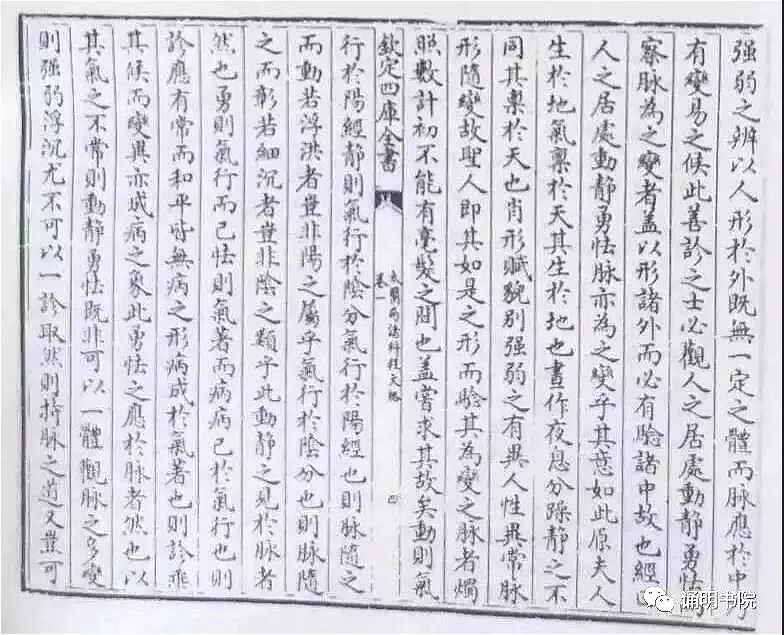 強弱之辨以人形於外既無一定之體而脈應於中
有變易之候此善診之士必觀人之居處動靜勇怯
察脈為之變者蓋以形諸外而必有驗諸中故也經
人之居處動靜勇怯脈亦為之變乎其意如此原夫人
生於地氣稟於天其生於地也晝作夜息分躁靜之不
同其稟於天也肖形賦貌別强弱之有異人性異常脈
形隨變故聖人即其如是之形而驗其為變之脈者燭
照數計初不能有毫髮之間也蓋嘗求其故矣動則氣
欽定四庫全書
卷一
太醫局諸科程文格
四
行於陽經靜則氣行於陰分氣行於陽經也則脈隨之
而動若浮洪者豈非陽之屬乎氣行於陰分也則脈隨
之而彰若細沉者豈非陰之類乎此動靜之見於脈者
然也勇則氣行而已怯則氣著而病病已於氣行也則
診應有常而和平皆無病之形病成於氣著也則診乖
其候而變異亦成病之象此勇怯之應於脈者然也以
其氣之不常則動靜勇怯既非可以一體觀脈之多變
則强弱浮沉尤不可以一診取然則持脈之道又豈可
誦明书院